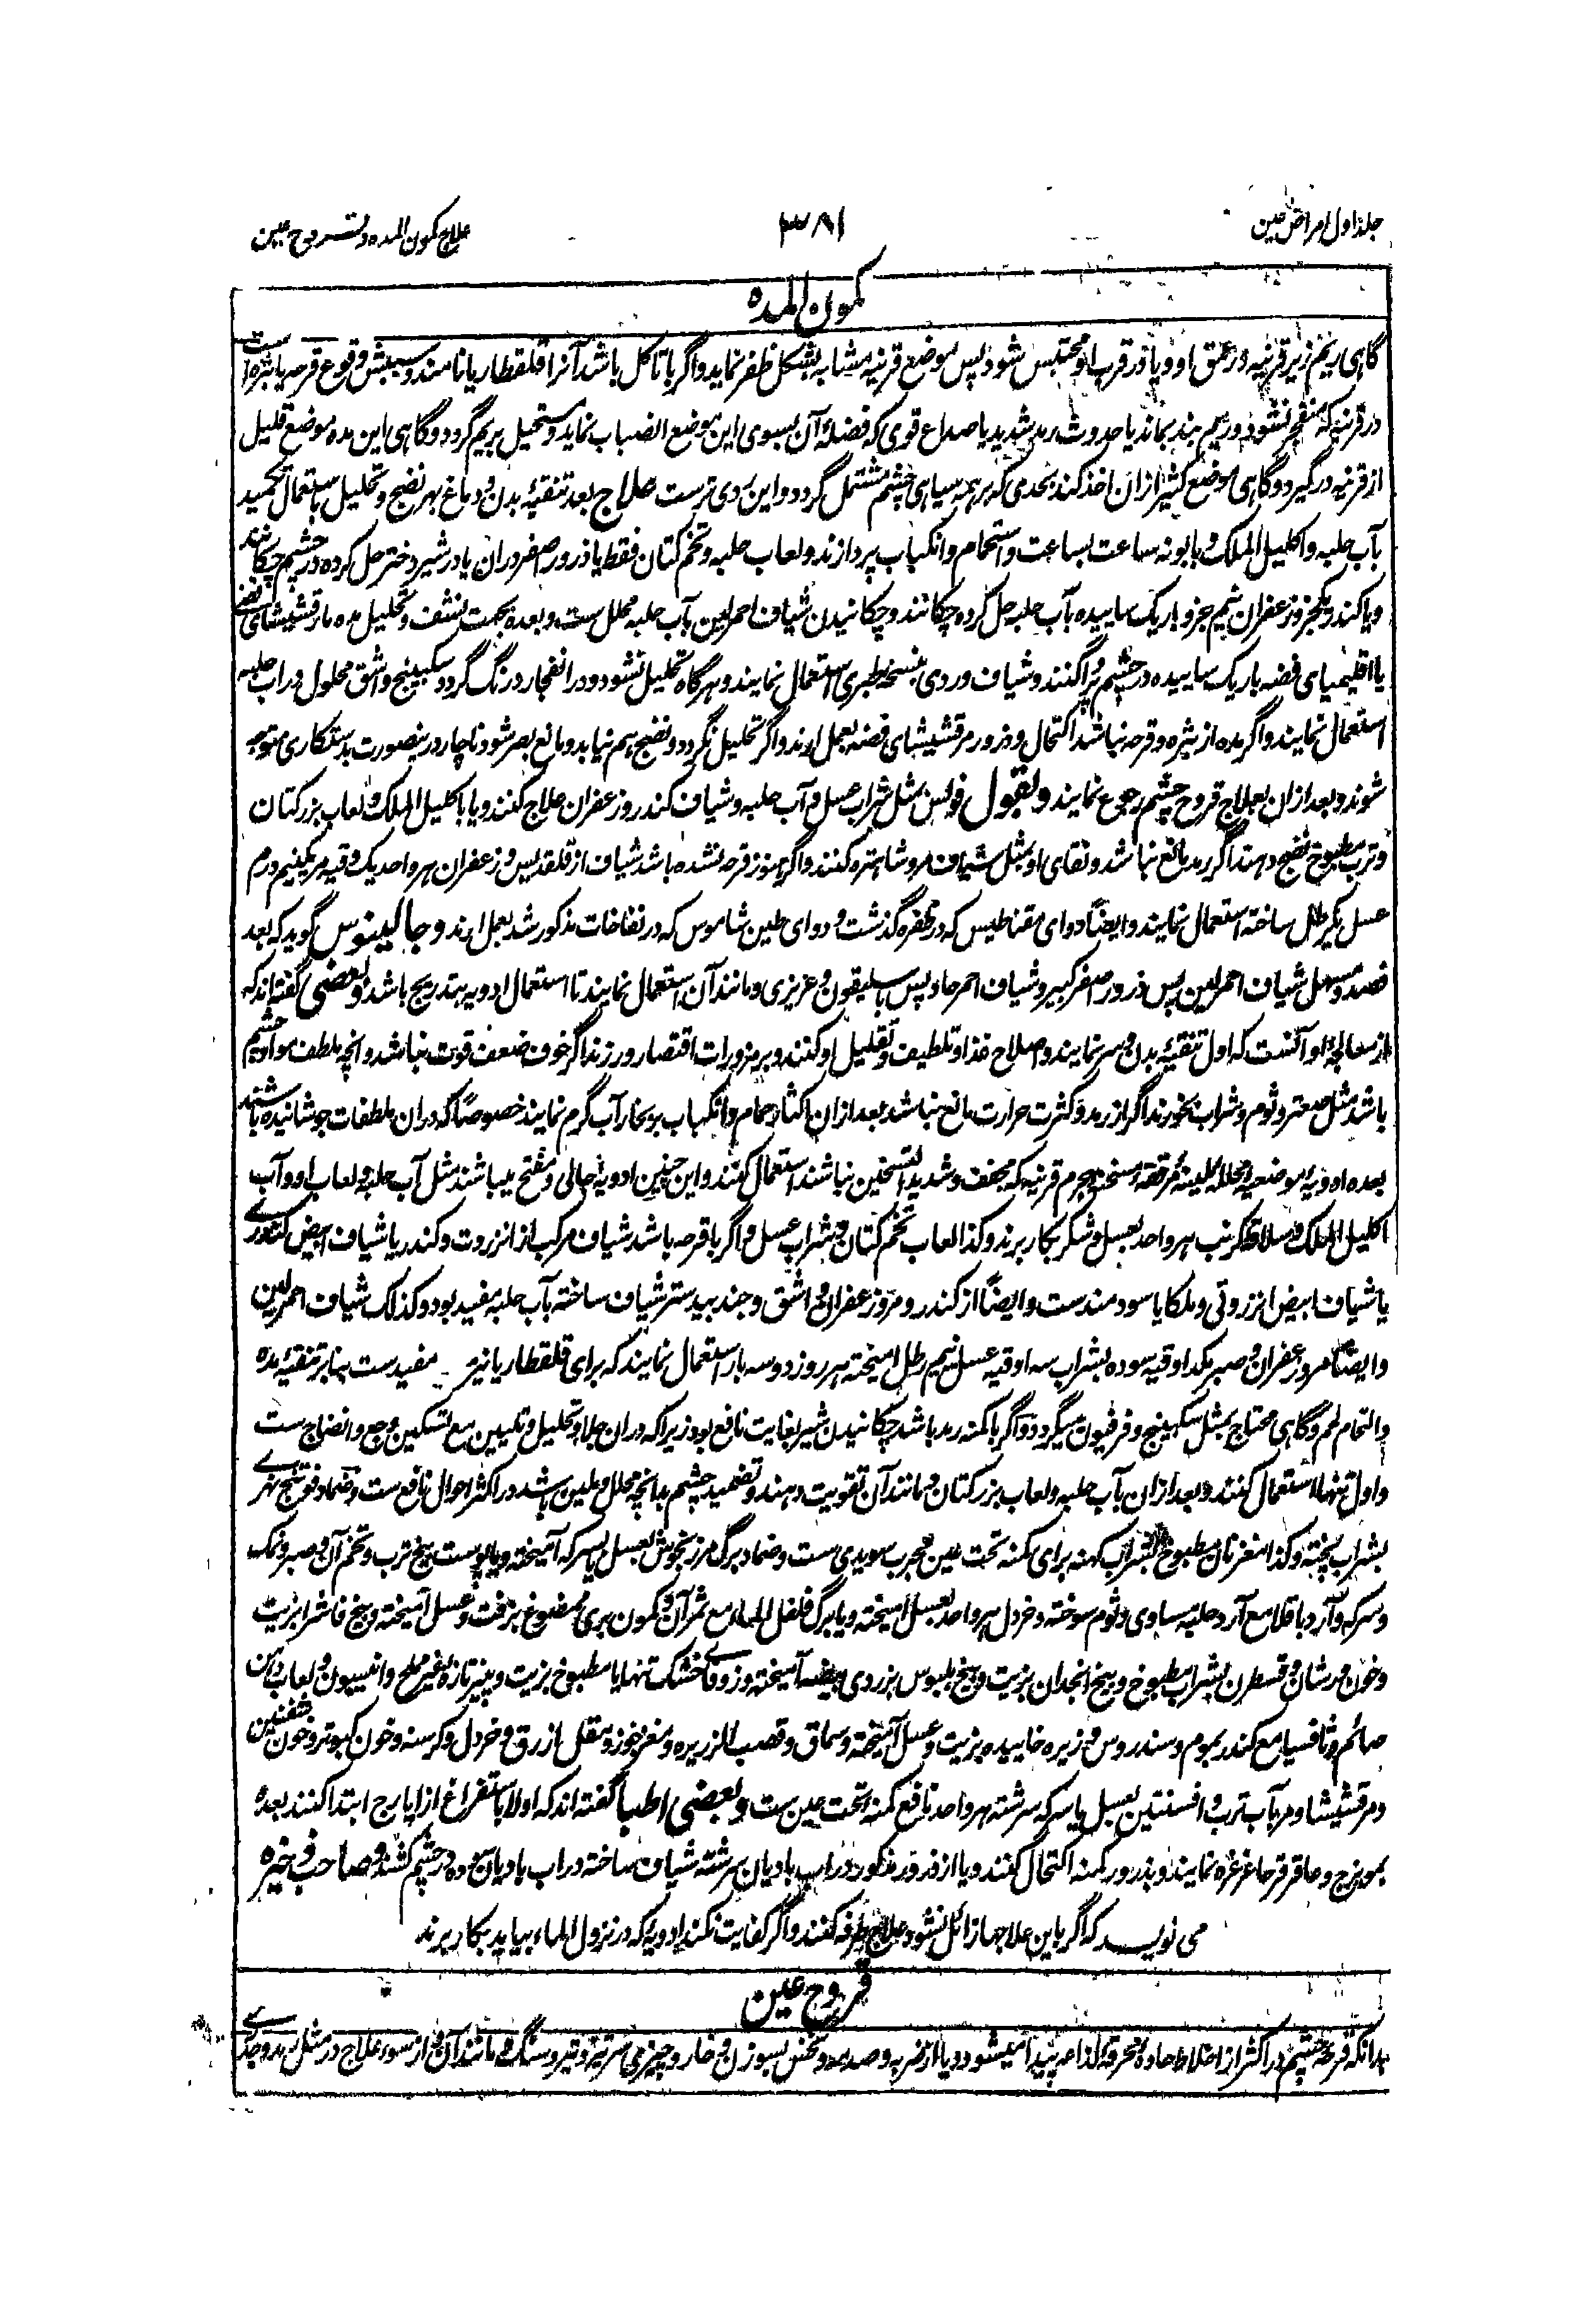 جلد اول امراض عین
۳۸۱
علاج کمون المده و قروح عین
کمون المده
گاهی ریم زیر قرنیه در عمق او و یا در قرب او محتبس شود پس موضع قرنیه مشابه بشکل ظفر نماید و اگر با تاکل باشد آنرا قلقطاریا نامند و سببش وقوع قرحه یا بثره است
در قرنیه که منفجر نشود و ریم بند بماند یا حدوث رمد شدید یا صداع قوی که فضلهٔ آن بسوی این موضع انصباب نماید و مستحیل بریم گردد و گاهی این مده موضع قلیل
از قرنیه در گیرد و گاهی موضع کثیر ازان اخذ کند بحدی که بر همه سیاهی چشم مشتمل گردد و این ردی ترست علاج بعد تنقیهٔ بدن و دماغ بهر نضج و تحلیل باستعمال تکمید
بآب حلبه و اکلیل الملک و بابونه ساعت بساعت و استحمام و انکباب پردازند و لعاب حلبه و تخم کتان فقط یا ذرور اصفر دران یا در شیر دختر حل کرده در چشم چکانند
و یا کندر یکجزو زعفران نیم جزو باریک ساییده بآب حلبه حل کرده چکانند و چکانیدن شیاف احمر لین بآب حلبه محلل ست و بعده بجهت نشف و تحلیل مده مارقشیشای فضی
یا اقلیمیای فضه باریک ساییده در چشم پراگنند و شیاف وردی بنسخه طبری استعمال نمایند و هرگاه تحلیل نشود و در انفجار درنگ گردد سکبینج و اشق محلول در آب حلبه
استعمال نمایند و اگر مده از بثره و قرحه نباشد اکتحال و ذرور مرقشیشای فضه بعمل آرند و اگر تحلیل نگردد و نضج هم نیابد و مانع بصر شود ناچار درینصورت بدستکاری متوجه
شوند و بعد ازان بعلاج قروح چشم رجوع نمایند و بقول فولس بمثل شراب عسل و آب حلبه و شیاف کندر و زعفران علاج کنند و یا باکلیل الملک و لعاب بزر کتان
و ترب مطبوخ نضج دهند اگر رمد مانع نباشد و نقای او بمثل شیاف مر و شاهتره کنند و اگر هنوز قرحه نشده باشد شیاف از قلقدیس و زعفران هر واحد یک وقیه مر یکنیم درم
عسل یکرطل ساخته استعمال نمایند و ایضاً دوای مقناطیس که در ظفره گذشت و دوای طین شاموس که در نفاخات مذکور شد بعمل آرند و جالینوس گوید که بعد
فصد و مسهل شیاف احمر لین پس ذرور اصفر کبیر و شیاف احمر حاد پس باسلیقون و عزیزی و مانند آن استعمال نمایند تا استعمال ادویه بتدریج باشد و بعضی گفته‌اند که
از معالجهٔ او آنست که اول تنقیهٔ بدن و سر نمایند و اصلاح غذا و تلطیف و تقلیل او کنند و بر مزورات اقتصار ورزند اگر خوف ضعف قوت نباشد و آنچه ملطف مواد چشم
باشد مثل صعتر و ثوم و شراب بخورند اگر از رمد و کثرت حرارت مانع نباشد بعد ازان اکثار حمام و انکباب بر بخار آب گرم نمایند خصوصاً که دران ملطفات جوشانیده باشند
بعده ادویهٔ موضعیه محلله ملینهٔ مرققه و مسخنه جرم قرنیه که مجفف و شدید التسخین نباشند استعمال کنند و این چنین ادویه جالی و مفتح میباشند مثل آب حلبه و لعاب او و آب
اکلیل الملک و سلاقهٔ کرنب هر واحد بعسل و شکر بکار برند و کذا لعاب تخم کتان و شراب عسل و اگر با قرحه باشد شیاف مرکب از انزروت و کندر یا شیاف ابیض کندری
یا شیاف ابیض انزروتی و ملکایا سودمندست و ایضاً از کندر و مر و زعفران و اشق و جندبیدستر شیاف ساخته بآب حلبه مفید بود و کذلک شیاف احمر لین
و ایضاً مر و زعفران و صبر یک اوقیه سوده بشراب سه اوقیه عسل نیم رطل آمیخته هر روز دو سه بار استعمال نمایند که برای قلقطاریا نیز مفیدست بنابر تنقیهٔ مده
و التحام لحم و گاهی محتاج بمثل سکبینج و فرفیون میگردد و اگر با کمنه رمد باشد چکانیدن شیر بغایت نافع بود زیرا که دران جلا و تحلیل و تلیین مع تسکین وجع و انضاج ست
و اول تنها استعمال کنند و بعد ازان بآب حلبه و لعاب بزر کتان و مانند آن تقویت دهند و تضمید چشم بدانچه محلل و ملین باشد در اکثر احوال نافع ست و ضماد فوتنج نهری
بشراب پخته و کذا مغز نان مطبوخ بشراب کهنه برای کمنه تحت عین مجرب سویدی ست و ضماد برگ مرزنجوش بعسل یا سرکه آمیخته و یا پوست بیخ ترب و تخم آن و صبر و نمک
و سرکه و آرد باقلا مع آرد حلبه مساوی و ثوم سوخته و خردل هر واحد بعسل آمیخته و یا برگ فلفل الماء مع ثمر آن و کمون بری ممضوغ بزفت و عسل آمیخته و بیخ فاشرا بزیت
و خون ورشان و قسطرن بشراب مطبوخ و بیخ انجدان بزیت و بیخ بلبوس بزردی بیضه آمیخته و زوفای خشک تنها یا مطبوخ بزیت و پنیر تازه بغیر ملح و انیسون و لعاب دهن
صائم و ثافسیا مع کندر بموم و سندروس و زیره خاییده بزیت و عسل آمیخته و سماق و قصب الذریره و مغز جوز و مقل ازرق و خردل و کرسنه و خون کبوتر و خون شفنین
و مرقشیشا و مر بآب ترب و افسنتین بعسل یا سرکه سرشته هر واحد نافع کمنه تحت عین ست و بعضی اطبا گفته‌اند که اولا باستفراغ از ایارج ابتدا کنند بعده
بمویزج و عاقرقرحا غرغره نمایند و بذرور کمنه اکتحال کنند و یا از ذرور مذکور در آب بادیان سرشته شیاف ساخته در آب بادیان سوده در چشم کشند و صاحب ذخیره
می نویسد که اگر باین علاجها زائل نشود علاج طرفه کنند و اگر کفایت نکند ادویه که در نزول الماء بیاید بکار برند
قروح عین
بدانکه قرحهٔ چشم در اکثر از اخلاط حادهٔ محرقهٔ لذاعه پیدا میشود و یا از ضربه و صدمه و نخس بسوزن و خار و چیزی سر تیز و تیر و سنگ و مانند آن و از سوء علاج در مثل رمد و جدری